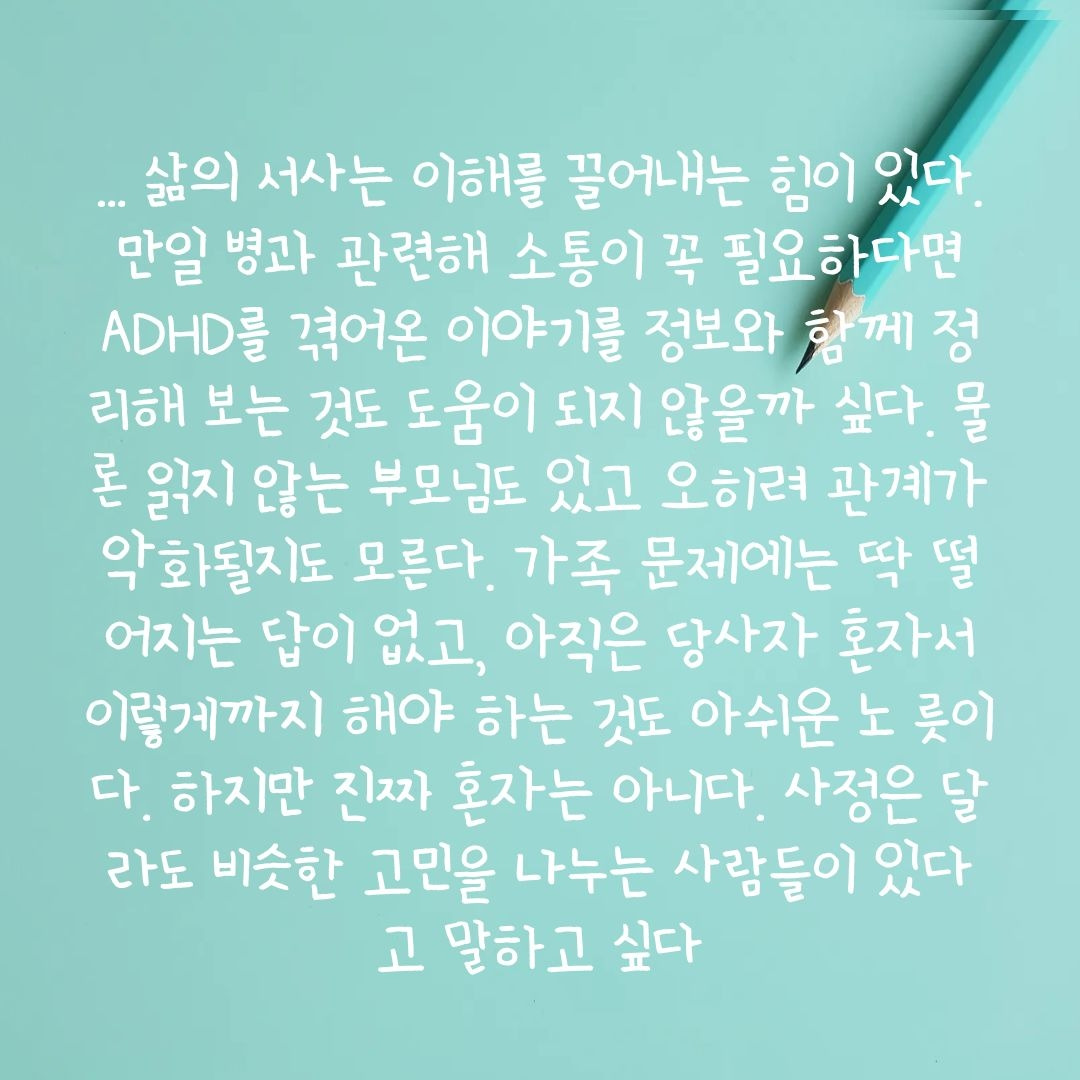 ... 삶의 서사는 이해를 끌어내는 힘이 있다.
만일 병과 관련해 소통이 꼭 필요하다면
ADHD를 겪어온 이야기를 정보와 함께 정
리해 보는 것도 도움이 되지 않을까 싶다. 물
론 읽지 않는 부모님도 있고 오히려 관계가
악화될지도 모른다. 가족 문제에는 딱 떨
어지는 답이 없고, 아직은 당사자 혼자서
이렇게까지 해야 하는 것도 아쉬운 노 릇이
다. 하지만 진짜 혼자는 아니다. 사정은 달
라도 비슷한 고민을 나누는 사람들이 있다
고 말하고 싶다